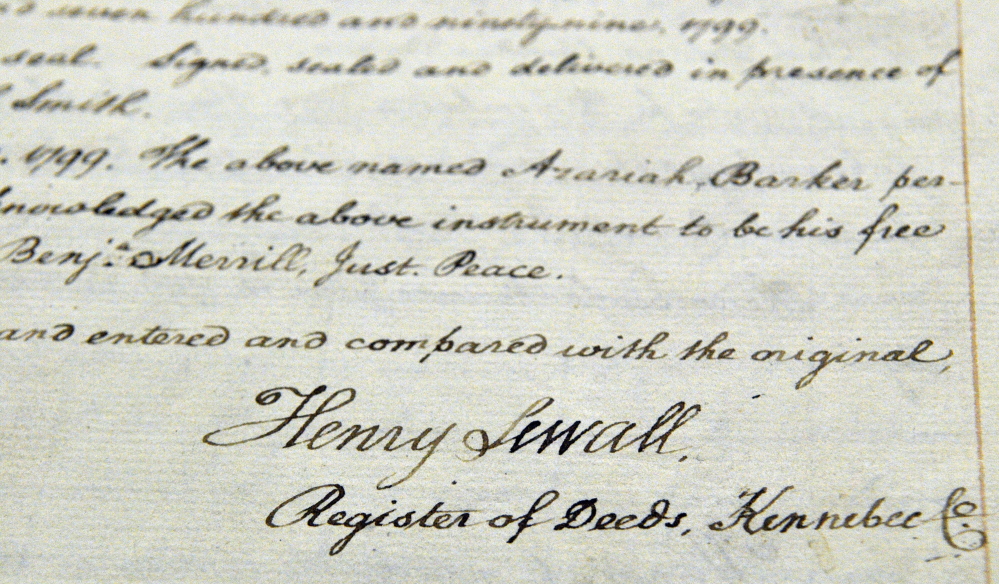 seven hundred and ninety nine. 1799.
seal. Signed, sealed and delivered in presence of
Smith.
1799. The above named Azariah Barker per-
knowledged the above instrument to be his free
Benj.ª Merrill, Just. Peace.
and entered and compared with the original,
Henry Sewall.
Register of Deeds, Kennebec Co.